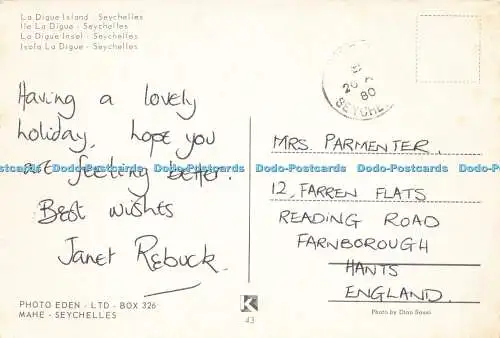 La Digue Island - Seychelles
Ile La Digue - Seychelles
La Digue Insel - Seychelles
Isola La Digue - Seychelles
Having a lovely
holiday, hope you
are feeling better.
Best wishes
Janet Rebuck.
PHOTO EDEN - LTD - BOX 326
MAHE - SEYCHELLES
20
80
SEYCHEL
MRS. PARMENTER.
12, FARREN FLATS
READING ROAD
FARNBOROUGH
HANTS
ENGLAND.
Photo by Dino Sassi
K
43
Dodo-Postcards Dodo-Postcards Dodo-Postcards Dodo-Postcards Dodo-Postcards Dodo-Postcards